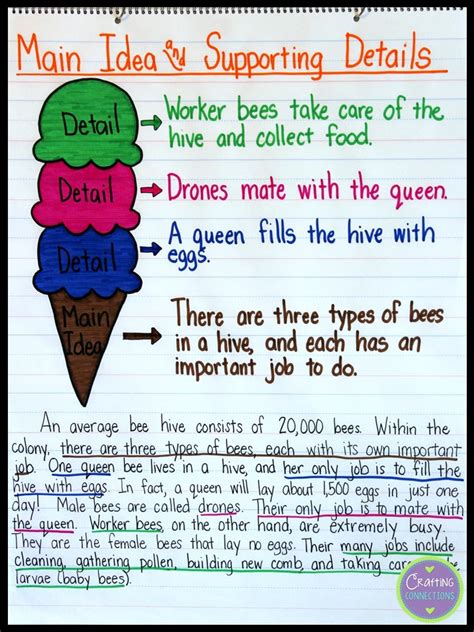 Main Idea and Supporting Details
Detail
Worker bees take care of the
hive and collect food.
Detail
Drones mate with the queen.
Detail
A queen fills the hive with
eggs.
Main
Idea
There are three types of bees
in a hive, and each has an
important job to do.
An average bee hive consists of 20,000 bees. Within the
colony, there are three types of bees, each with its own important
job. One queen bee lives in a hive, and her only job is to fill the
hive with eggs. In fact, a queen will lay about 1,500 eggs in just one
day! Male bees are called drones. Their only job is to mate with
the queen. Worker bees, on the other hand, are extremely busy.
They are the female bees that lay no eggs. Their many jobs include
cleaning, gathering pollen, building new comb, and taking care
larvae (baby bees).
CRAFTING
CONNECTIONS